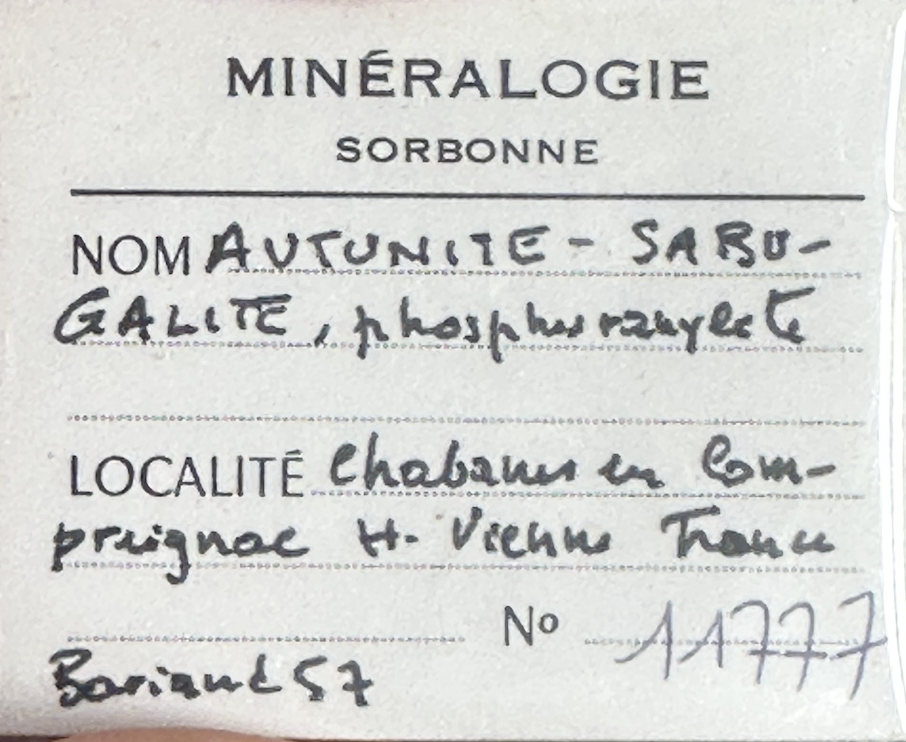 MINÉRALOGIE
SORBONNE
NOM AUTUNITE - SABU-
GALITE, phosphuranylite
LOCALITÉ Chabanes en Com-
preignac H. Vienne France
No 11777
Bariand 57